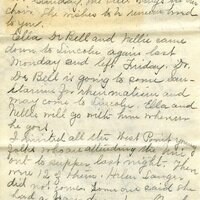 Sunday, Mr.
choir. She wishes to be remembered
to you.
Ella De Bell and Nellie came
down to Lincoln again last
Monday and left Friday. Dr.
De Bell is going to some san-
itarium for rheumatism and
may come to Lincoln. Ella and
Nellie will go with him wherever
he goes.
I invited all the West Point young
folks who are attending the Uni
out to supper last night. There
were 12 of them. Helen
did not come. Some one said she
had a